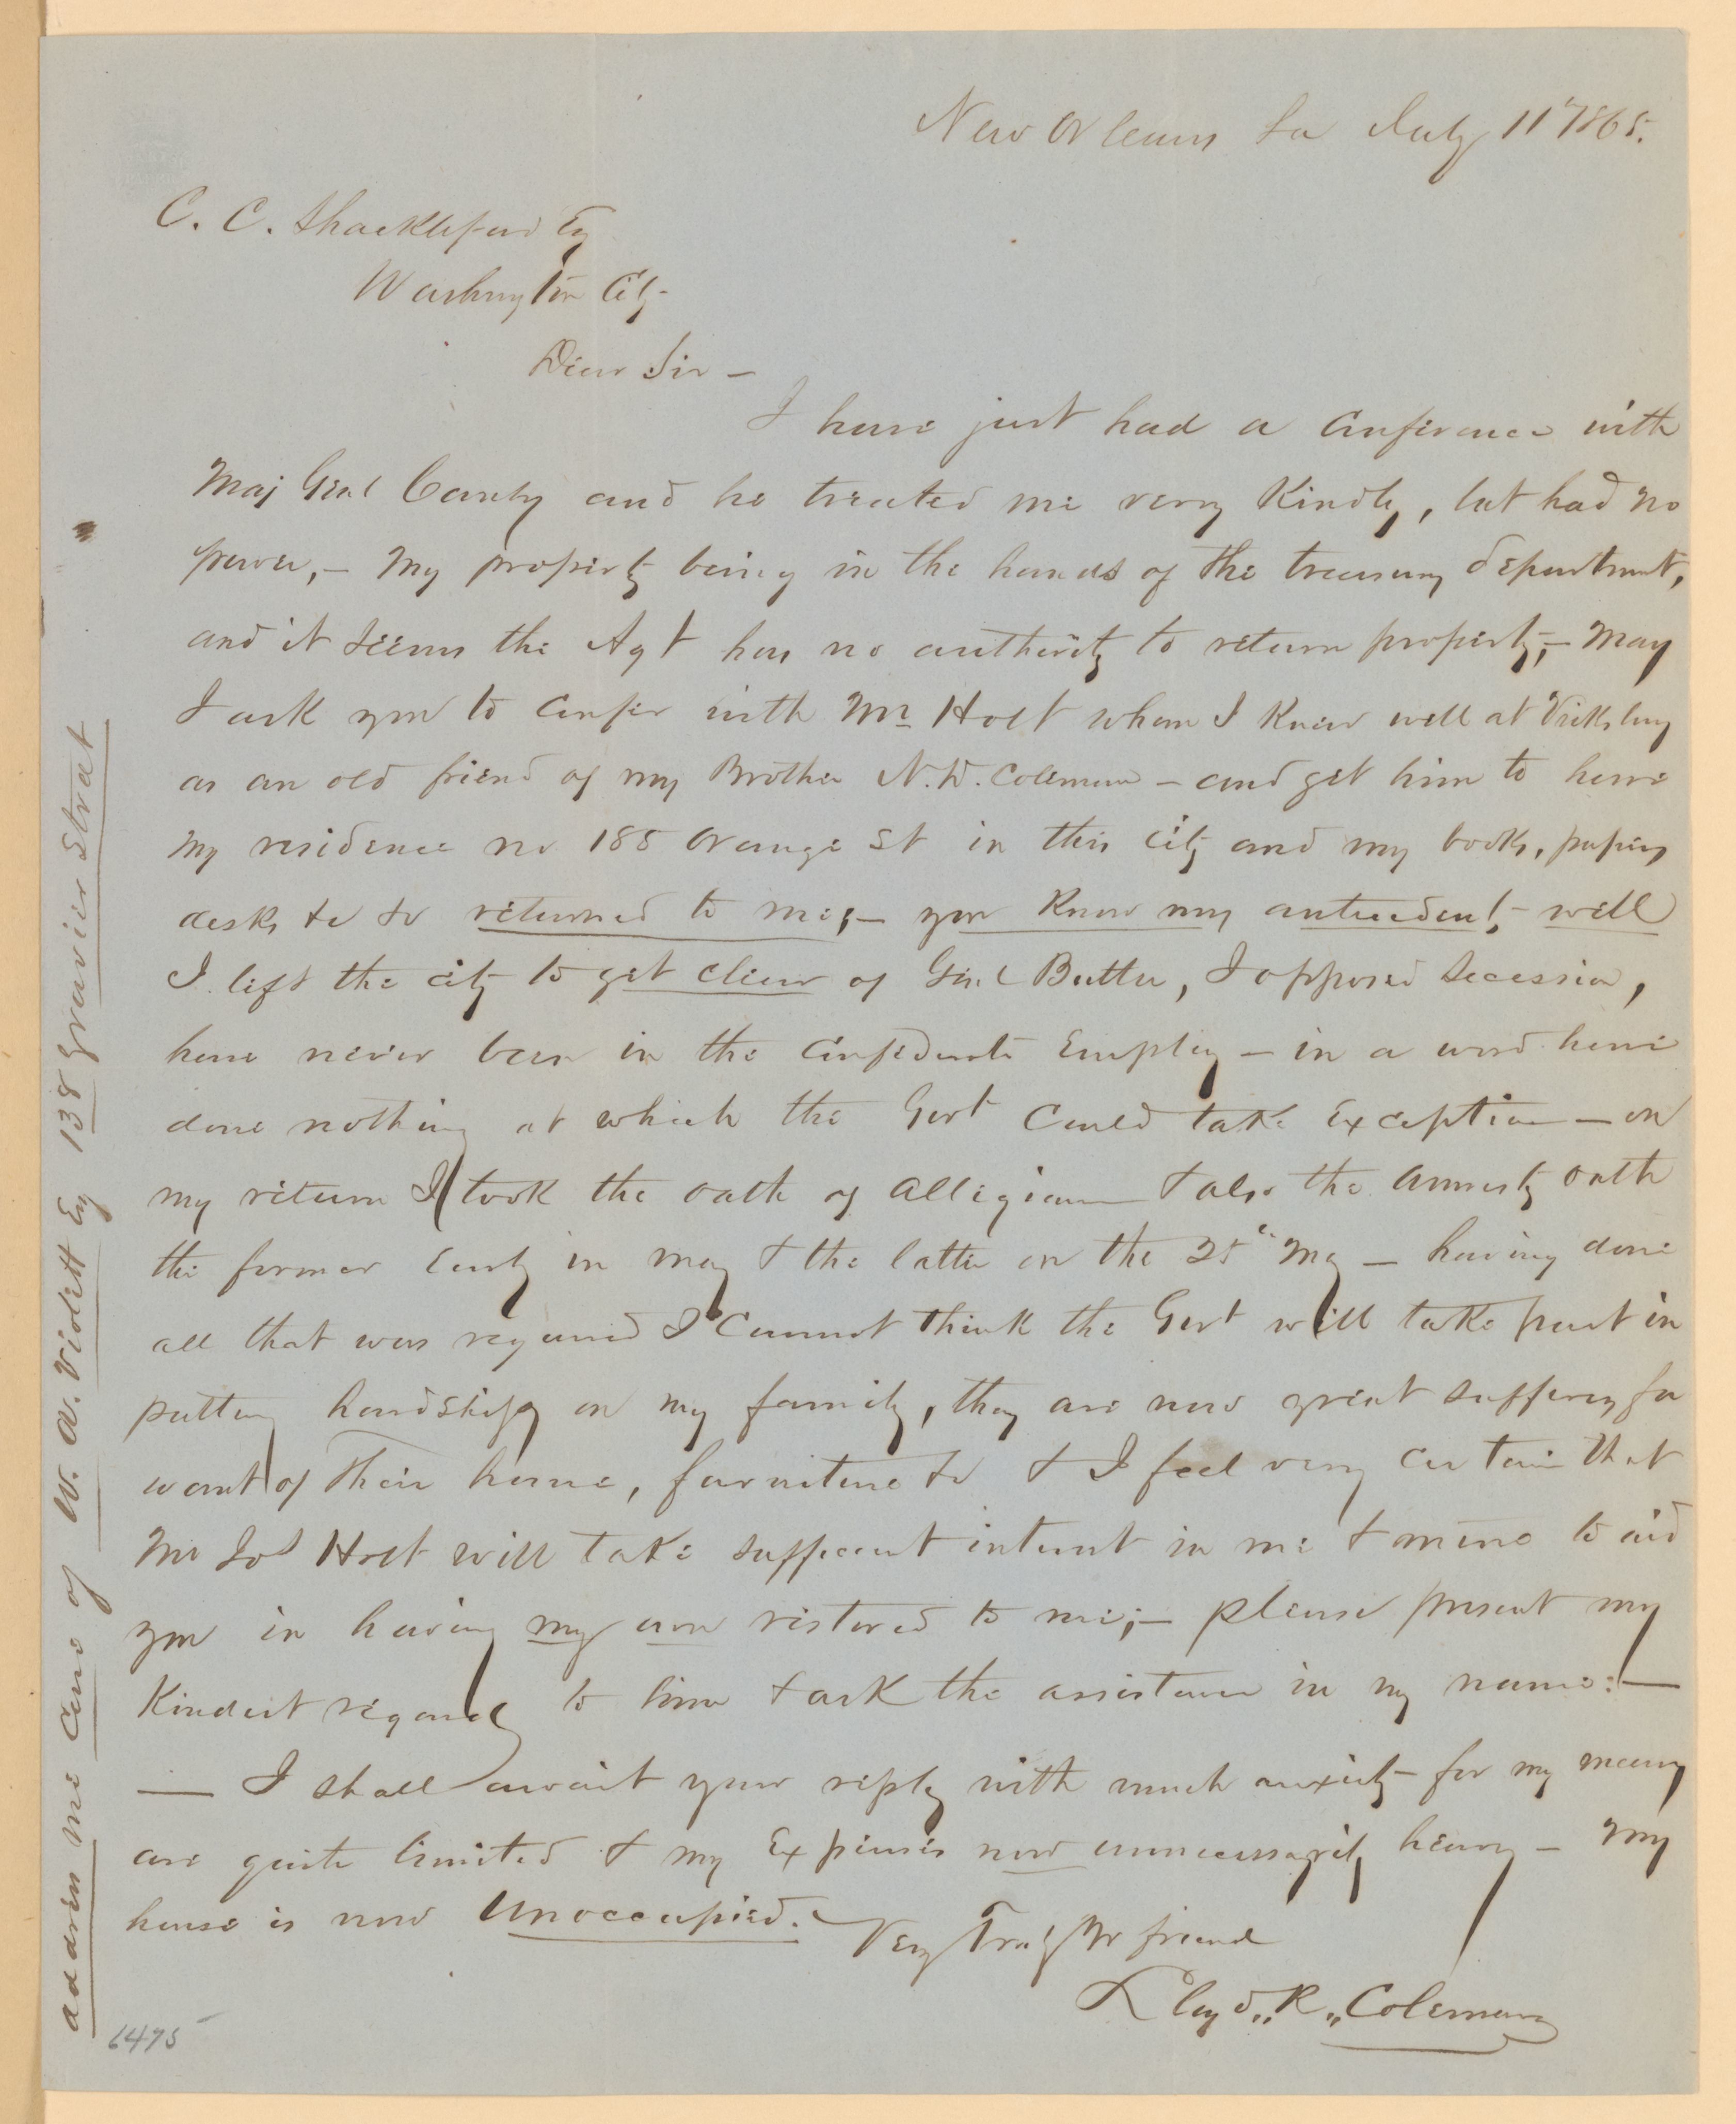 New Orleans La July 11" 1865.
C. C. Shackleford Esq
Washington City
Dear Sir —
I have just had a conference with
Maj Genl Canby and he treated me very kindly, but had no
power, — my property being in the hands of the treasury department,
and it seems the Agt has no authority to return property; — May
I ask you to confer with Mr Holt whom I knew well at Vicksburg
as an old friend of my Brother N. D. Coleman — and get him to have
my residence no 185 Orange St in this city and my books, papers
desks &c &c returned to me; — you know my antecedents well
I left the city to get clear of Genl Butler, I opposed Secession,
have never been in the Confederate Employ — in a word have
done nothing at which the Govt could take Exception — on
my return I took the oath of allegiance & also the amnesty oath
the former Early in May & the latter on the 25" May — having done
all that was required I cannot think the Govt will take part in
putting hardships on my family, they are now great suffering for
want of their home, furniture &c & I feel very certain that
Mr Jos Holt will take sufficient interest in me & mine to aid
you in having my own restored to me; — please present my
kindest regards to him & ask the assistance in my name: —
— I shall await your reply with much anxiety — for my means
are quite limited & my Expenses now unnecessarily heavy — my
house is now Unoccupied.
Very Truly Yr friend
Lloyd „ R „ Coleman
address me care of W. A. Violett Esq 138 Gravier Street
6475